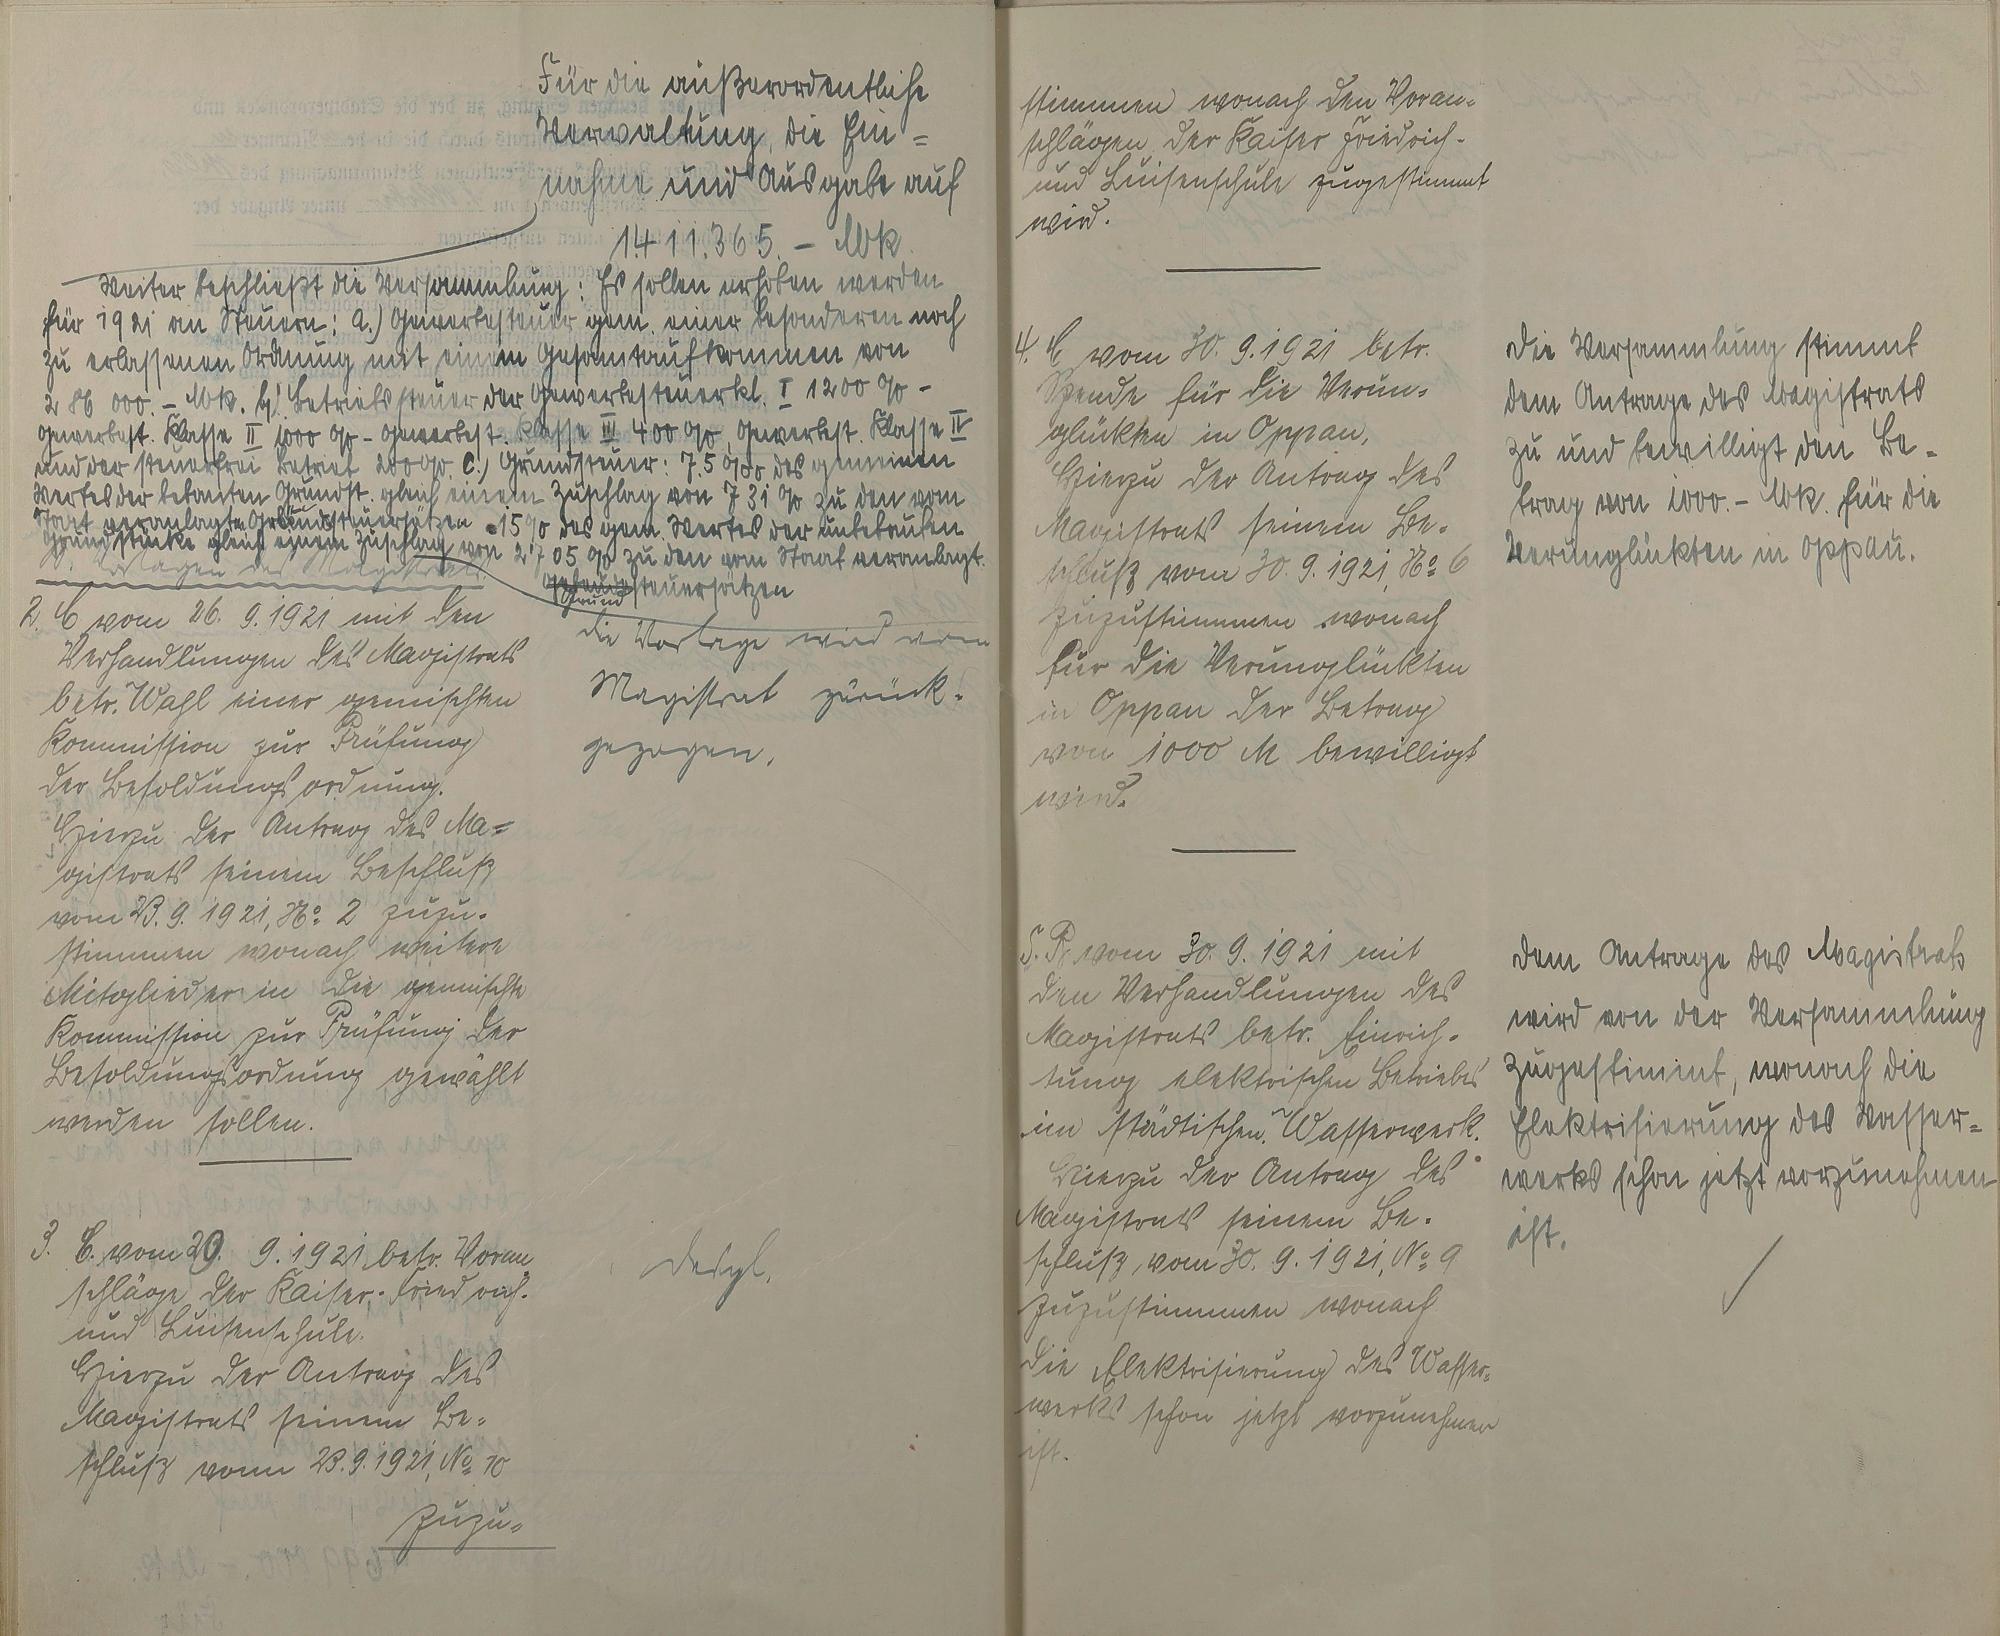 Für die außerordentliche
Verwaltung, die Ein=
nahme und Ausgabe auf
1411.365.- Mk.
Weiter beschließt die Versammlung: Es sollen erhoben werden
für 1921 an Steuern: a.) Gewerbesteuer gem. einer besonderen noch
zu erlassenen Ordnung mit einem Gesamtaufkommen von
286 000.- Mk. b) Betriebssteuer der Gewerbesteuerkl. I 1200 % -
Gewerbest. Klasse II 1000 % - Gewerbest. Klasse III 400 %, Gewerbest. Klasse IV
und der steuerfrei Betrieb 200 %. c.) Grundsteuer: 7,5 %o des gemeinen
Wertes der bebauten Grundst. gleich einem Zuschlag von 731 % zu den vom
Staat veranlagten Gebäudesteuersätzen 15 %o des gem. Wertes der unbebauten
Grundstücke gleich einem Zuschlag von 2705 % zu den vom Staat veranlagt.
Grundsteuersätzen
Vorlagen des Magistrats.
2. C vom 26. 9. 1921 mit den
Verhandlungen des Magistrats
betr. Wahl einer gemischten
Kommission zur Prüfung
der Besoldungsordnung.
Hierzu der Antrag des Ma=
gistrats seinem Beschluß
vom 23. 9. 1921, No 2 zuzu-
stimmen wonach weitere
Mitglieder in die gemischte
Kommission zur Prüfung der
Besoldungsordnung gewählt
werden sollen.
die Vorlage wird vom
Magistrat zurück-
gezogen.
3. C. vom 29. 9. 1921 betr. Voran
schläge der Kaiser-Friedrich-
und Luisenschule.
Hierzu der Antrag des
Magistrats seinem Be=
schluß vom 23. 9. 1921, No 10
zuzu=
Desgl.
stimmen wonach den Voran=
schlägen der Kaiser Friedrich-
und Luisenschule zugestimmt
wird.
4. C vom 30. 9. 1921 betr.
Spende für die Verun=
glückten in Oppau.
Hierzu der Antrag des
Magistrats seinem Be=
schluß vom 30. 9. 1921, No 6
zuzustimmen wonach
für die Verunglückten
in Oppau der Betrag
von 1000 M bewilligt
wird.
Die Versammlung stimmt
dem Antrage des Magistrats
zu und bewilligt den Be-
trag von 1000.- Mk. für die
Verunglückten in Oppau.
5. P. vom 30. 9. 1921 mit
den Verhandlungen des
Magistrats betr. Einrich-
tung elektrischen Betriebes
im städtischen Wasserwerk.
Hierzu der Antrag des
Magistrats seinem Be-
schluß vom 30. 9. 1921, No 9
zuzustimmen wonach
die Elektrisierung des Wasser=
werks schon jetzt vorzunehmen
ist.
Dem Antrage des Magistrats
wird von der Versammlung
zugestimmt, wonach die
Elektrisierung des Wasser=
werks schon jetzt vorzunehmen
ist.